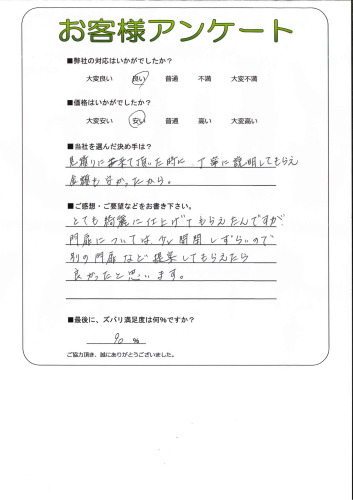 お客様アンケート
■弊社の対応はいかがでしたか？
大変良い 良い 普通 不満 大変不満
■価格はいかがでしたか？
大変安い 安い 普通 高い 大変高い
■当社を選んだ決め手は？
見積りに来て頂いた時に、丁寧に説明してもらえ
金額も安かったから。
■ご感想・ご要望などをお書き下さい。
とても綺麗に仕上げてもらえたんですが、
門扉については、少し開閉しずらいので
別の門扉など提案してもらえたら
良かったと思います。
■最後に、ズバリ満足度は何％ですか？
90 %
ご協力頂き、誠にありがとうございました。